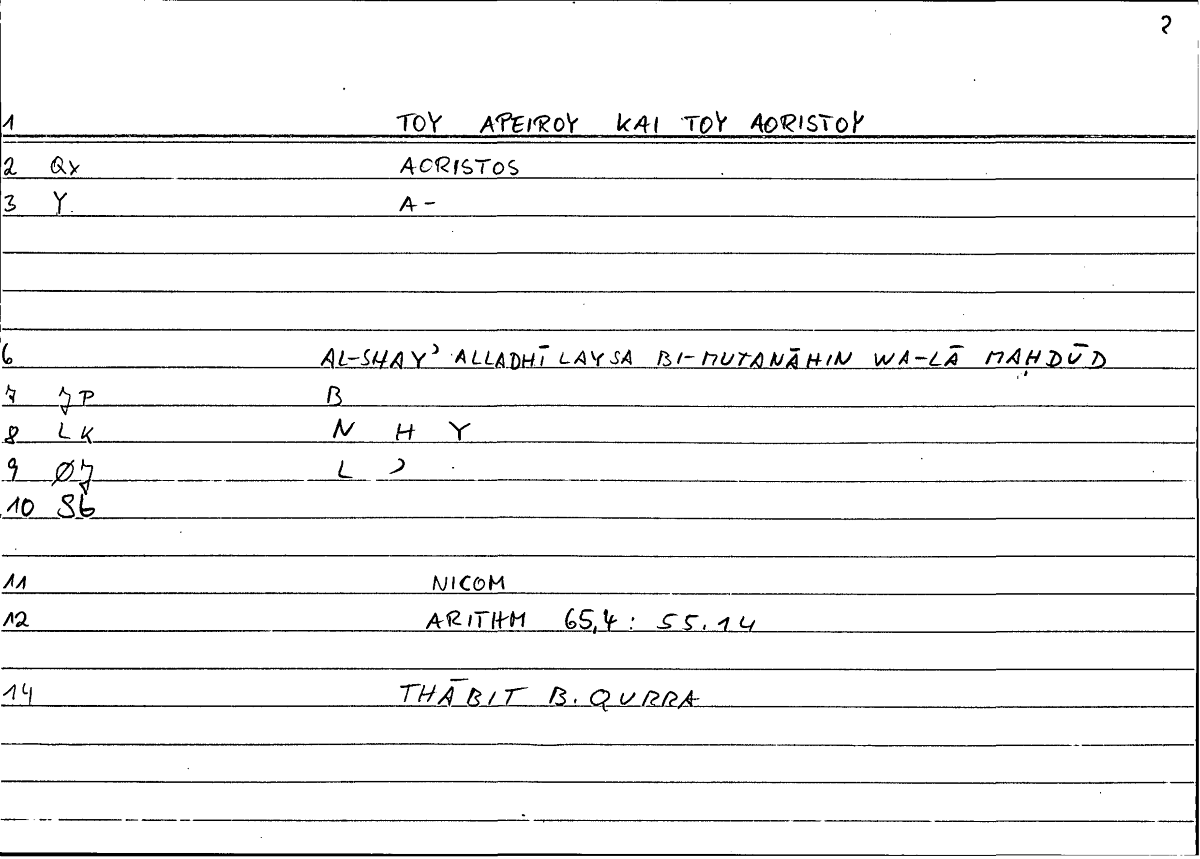 2
1 TOY APEIROY KAI TOY AORISTOY
2 Qx AORISTOS
3 Y A-
6 AL-SHAYʾ ALLADHĪ LAYSA BI-MUTANĀHIN WA-LĀ MAḤDŪD
7 JP B
8 LK N H Y
9 ØJ L ʾ
10 Sb
11 NICOM
12 ARITHM 65,4: 55.14
14 THĀBIT B. QURRA